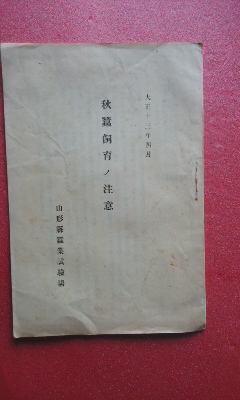 大正十三年四月
秋蠶飼育ノ注意
山形縣蠶業試驗場